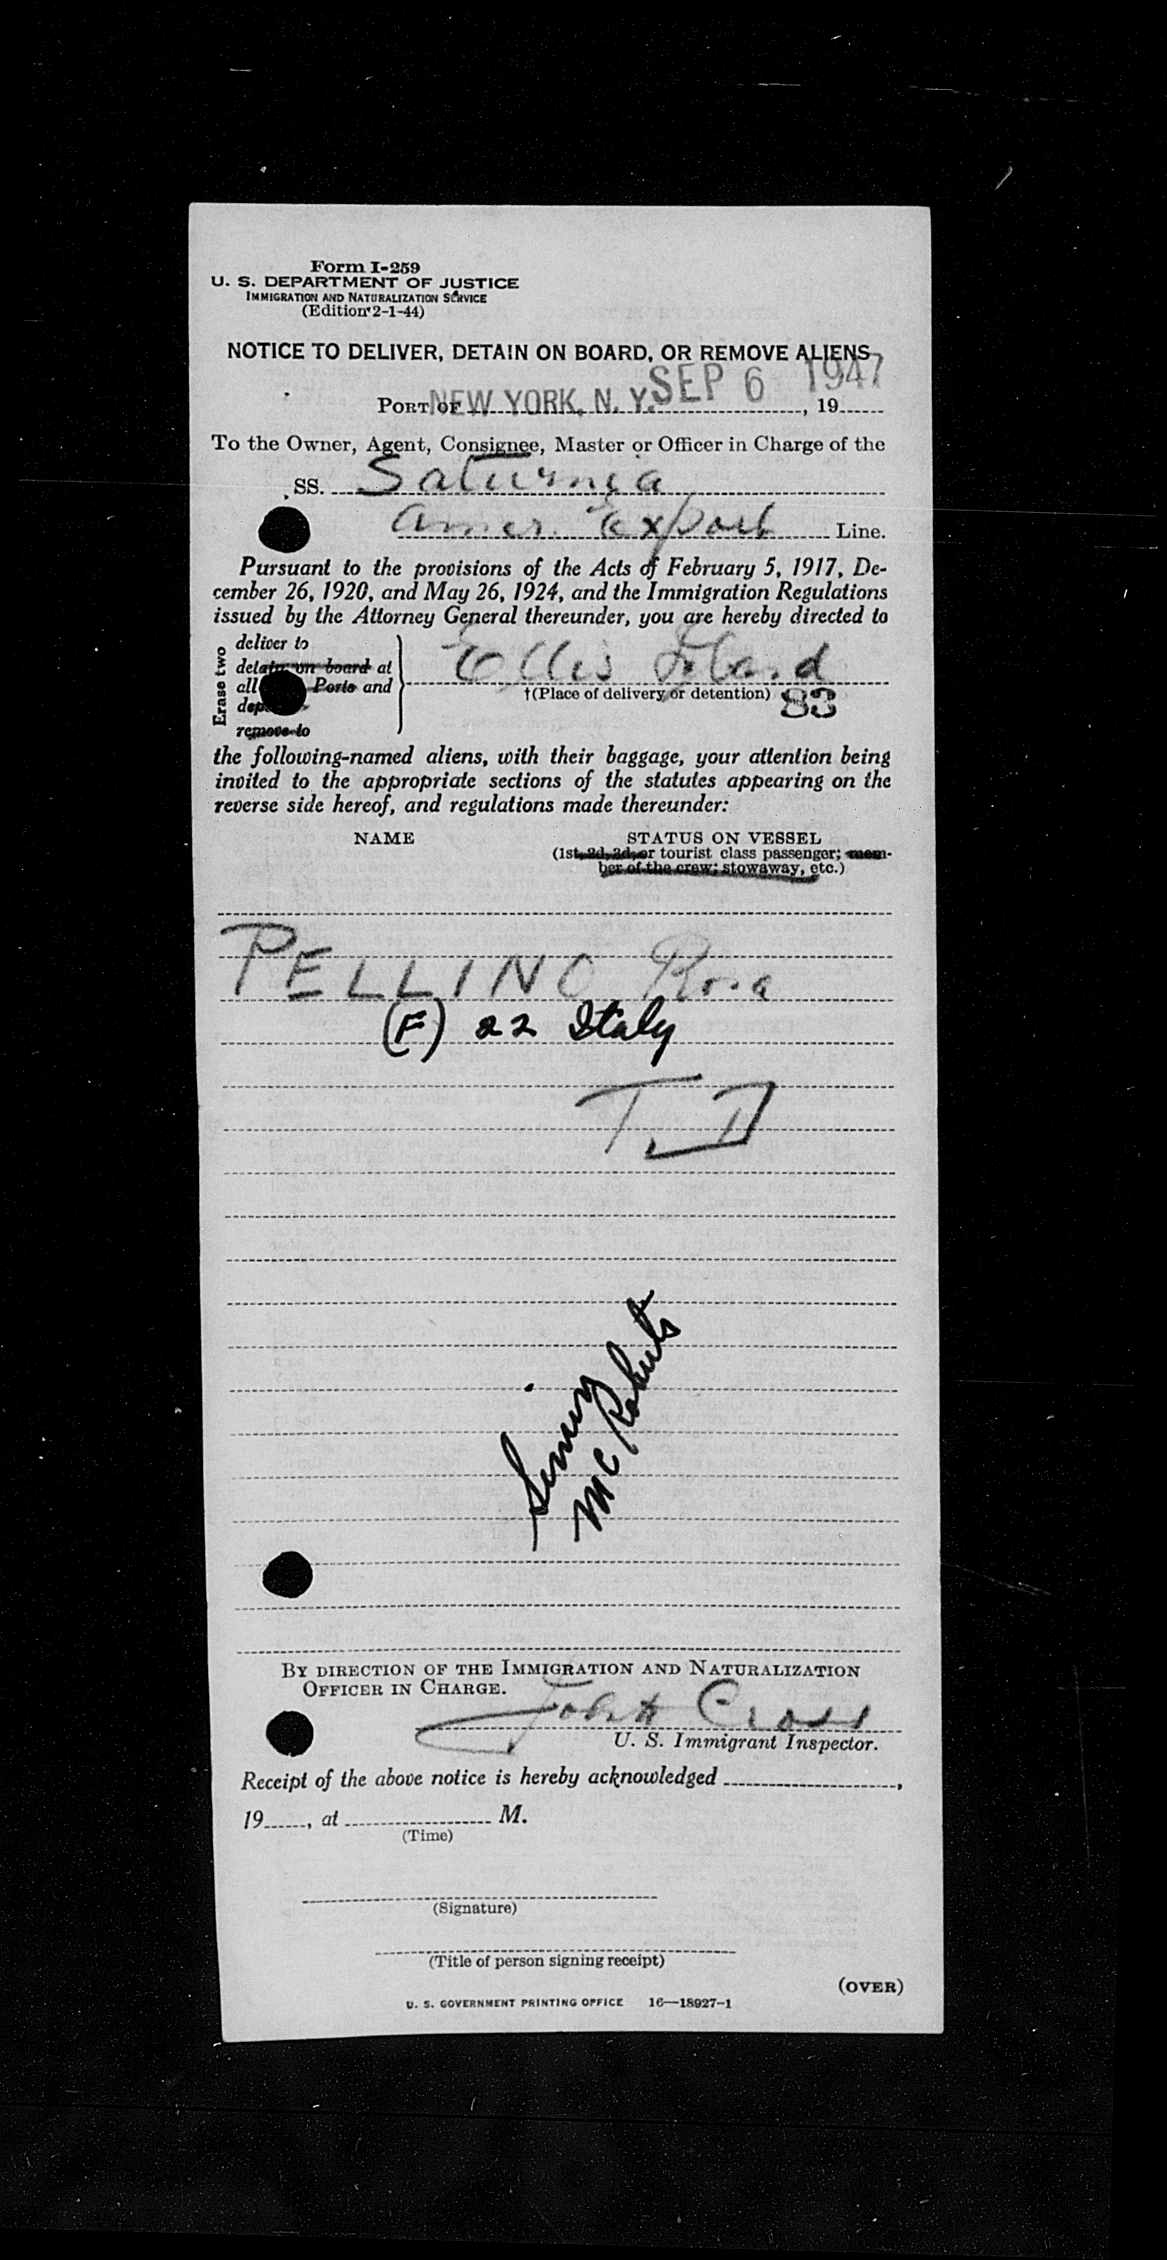 Form I-259
U. S. DEPARTMENT OF JUSTICE
IMMIGRATION AND NATURALIZATION SERVICE
(Edition 2-1-44)
NOTICE TO DELIVER, DETAIN ON BOARD, OR REMOVE ALIENS
PORT OF NEW YORK, N. Y. SEP 6 1947, 19
To the Owner, Agent, Consignee, Master or Officer in Charge of the
SS. Saturnia
Amer. Export Line.
Pursuant to the provisions of the Acts of February 5, 1917, De-
cember 26, 1920, and May 26, 1924, and the Immigration Regulations
issued by the Attorney General thereunder, you are hereby directed to
Erase two
deliver to
detain on board at
all Ports and
remove to
Ellis Island
†(Place of delivery or detention) 83
the following-named aliens, with their baggage, your attention being
invited to the appropriate sections of the statutes appearing on the
reverse side hereof, and regulations made thereunder:
NAME STATUS ON VESSEL
(1st, 2d, 3d, or tourist class passenger; mem-
ber of the crew; stowaway, etc.)
PELLINO Rosa
(F) 22 Italy
T.D
McRoberts
BY DIRECTION OF THE IMMIGRATION AND NATURALIZATION
OFFICER IN CHARGE.
Cross
U. S. Immigrant Inspector.
Receipt of the above notice is hereby acknowledged ,
19 , at M.
(Time)
(Signature)
(Title of person signing receipt)
(OVER)
U. S. GOVERNMENT PRINTING OFFICE 16—18927-1